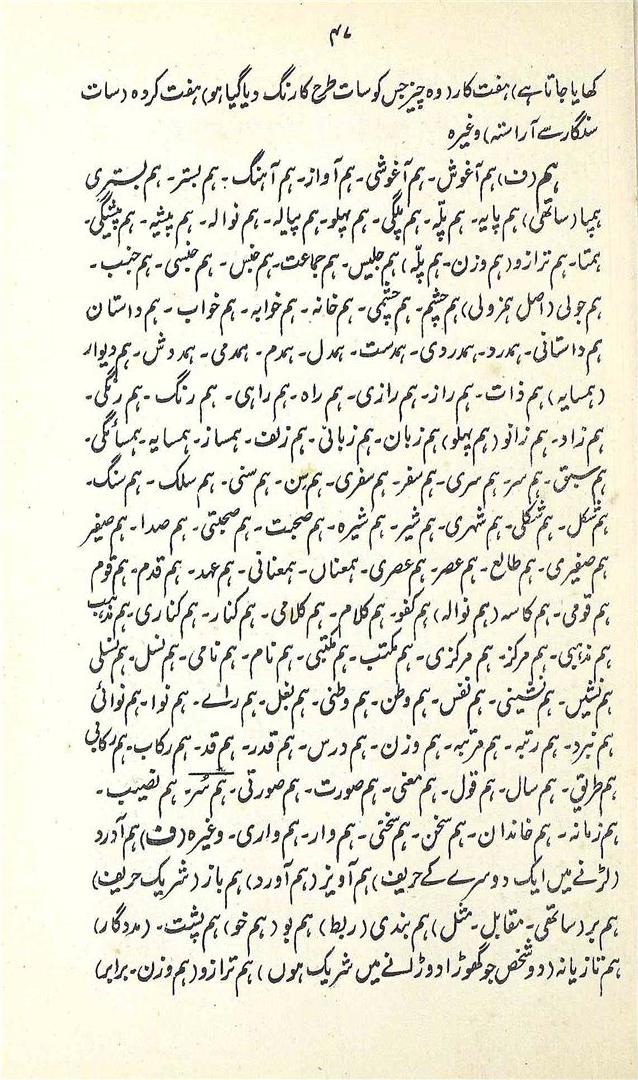 ۴۷
کھایا جاتا ہے) ہفت کار (وہ چیز جس کو سات طرح کا رنگ دیا گیا ہو) ہفت کردہ (سات
سنگار سے آراستہ) وغیرہ
ہم (ف) ہم آغوش۔ ہم آغوشی۔ ہم آواز۔ ہم آہنگ۔ ہم بستر۔ ہم بستری
ہمپا (ساتھی) ہم پایہ۔ ہم پلّہ۔ ہم پلگی۔ ہم پہلو۔ ہم پیالہ۔ ہم نوالہ۔ ہم پیشہ۔ ہم پیشگی۔
ہمتا۔ ہم ترازو (ہم وزن۔ ہم پلّہ) ہم جلیس۔ ہم جماعت۔ ہم جنس۔ ہم جنسی۔ ہم جنب۔
ہم جولی (اصل ہمزولی) ہم چشم۔ ہم چشمی۔ ہم خانہ۔ ہم خوابہ۔ ہم خواب۔ ہم داستان
ہم داستانی۔ ہمدرد۔ ہمدردی۔ ہمدست۔ ہمدل۔ ہمدم۔ ہمدمی۔ ہمدوش۔ ہم دیوار
(ہمسایہ) ہم ذات۔ ہم راز۔ ہم رازی۔ ہم راہ۔ ہم راہی۔ ہم رنگ۔ ہم رنگی۔
ہم زاد۔ ہم زانو (ہم پہلو) ہم زبان۔ ہم زبانی۔ ہم زلف۔ ہمساز۔ ہمسایہ۔ ہمسائگی۔
ہم سبق۔ ہم سر۔ ہم سری۔ ہم سفر۔ ہم سفری۔ ہم سِن۔ ہم سنی۔ ہم سلک۔ ہم سنگ۔
ہم شکل۔ ہم شکلی۔ ہم شہری۔ ہم شیر۔ ہم شیرہ۔ ہم صحبت۔ ہم صحبتی۔ ہم صدا۔ ہم صفیر
ہم صفیری۔ ہم طالع۔ ہم عصر۔ ہم عصری۔ ہمعناں۔ ہمعنانی۔ ہم عہد۔ ہم قدم۔ ہم قوم
ہم قومی۔ ہم کاسہ (ہم نوالہ) ہم کفو۔ ہم کلام۔ ہم کلامی۔ ہم کنار۔ ہم کناری۔ ہم مذہب
ہم مذہبی۔ ہم مرکز۔ ہم مرکزی۔ ہم مکتب۔ ہم مکتبی۔ ہم نام۔ ہم نامی۔ ہم نسل۔ ہم نسلی
ہم نشیں۔ ہم نشینی۔ ہم نفس۔ ہم وطن۔ ہم وطنی۔ ہم بغل۔ ہم راے۔ ہم نوا۔ ہم نوائی
ہم نبرد۔ ہم رتبہ۔ ہم مرتبہ۔ ہم وزن۔ ہم درس۔ ہم قدر۔ ہم قد۔ ہم رکاب۔ ہم رکابی
ہم طریق۔ ہم سال۔ ہم قول۔ ہم معنی۔ ہم صورت۔ ہم صورتی۔ ہم سُر۔ ہم نصیب۔
ہم زمانہ۔ ہم خاندان۔ ہم سخن۔ ہم سخنی۔ ہم وار۔ ہم واری۔ وغیرہ (ف) ہم آورد
(لڑنے میں ایک دوسرے کے حریف) ہم آویز (ہم آورد) ہم باز (شریک حریف)
ہم بر (ساتھی۔ مقابل۔ مثل) ہم بندی (ربط) ہم بو (ہم خو) ہم پشت۔ (مددگار)
ہم تازیانہ (دو شخص جو گھوڑا دوڑانے میں شریک ہوں) ہم ترازو (ہم وزن۔ برابر)